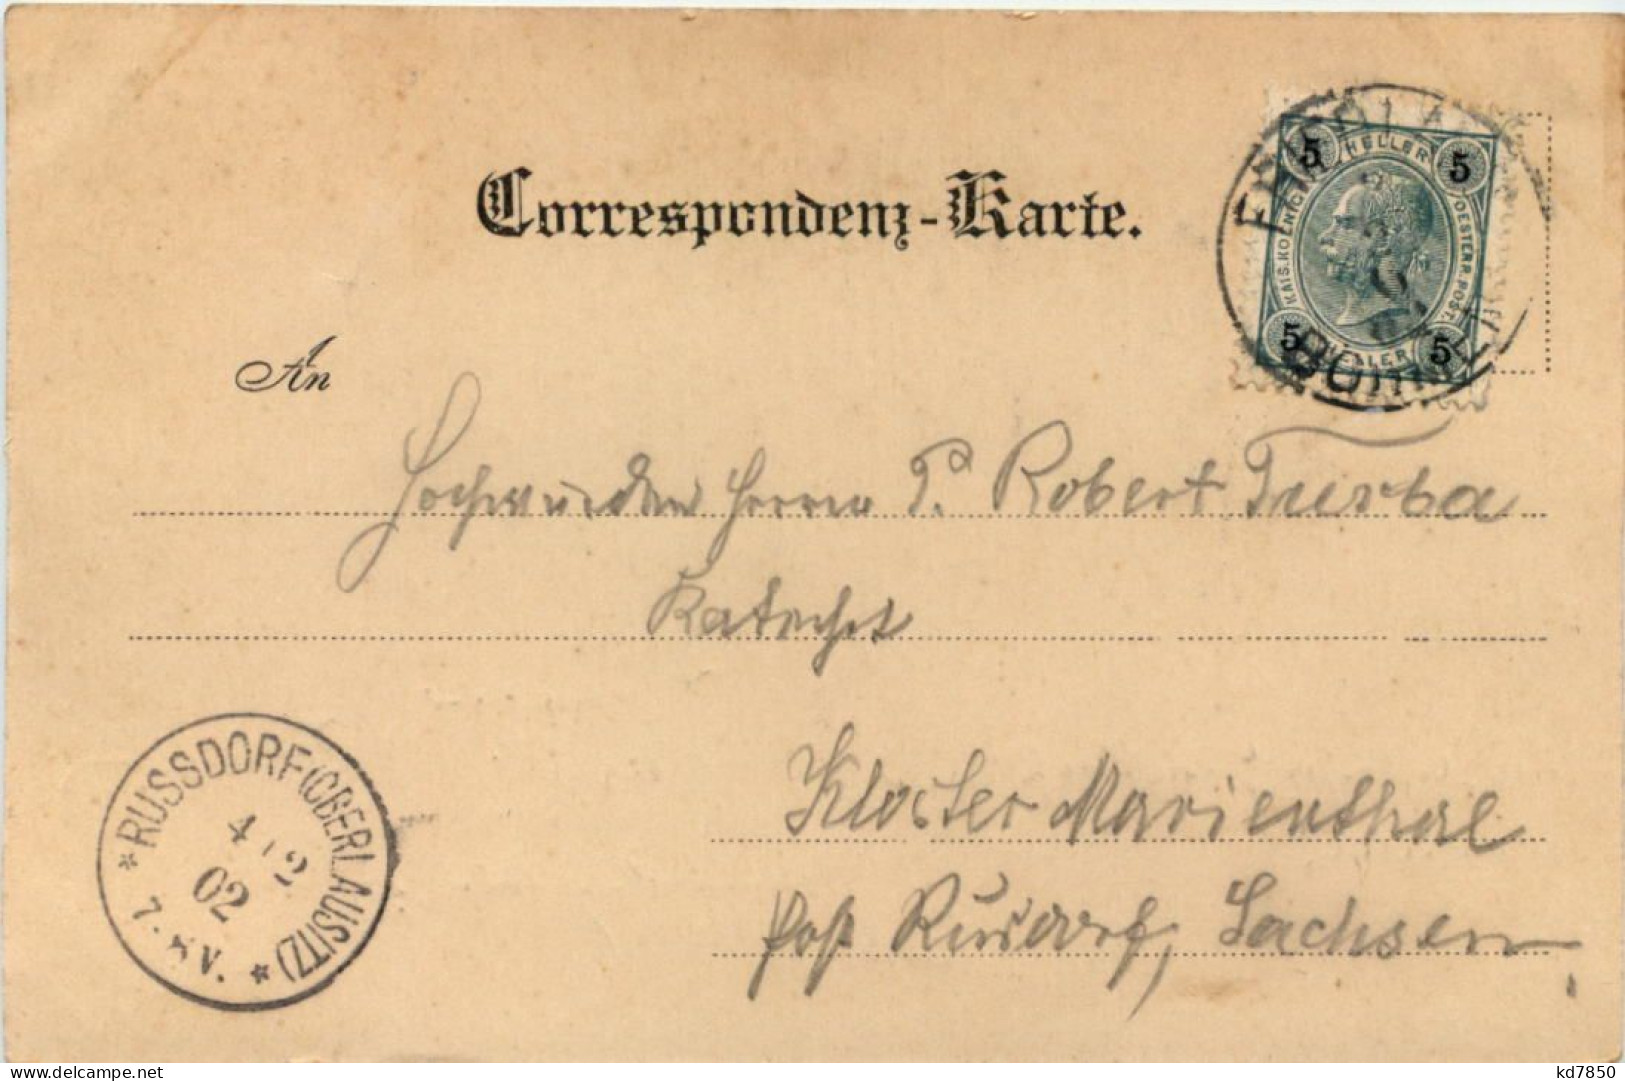 Correspondenz-Karte.
5 HELLER 5
KAIS. KOENIGL. OESTERR. POST.
5 HELLER 5
FRIEDLAND
BÖHMEN
An
Hochwürden Herrn P. Robert
Katechet
Kloster Marienthal
Post Rusdorf, Sachsen
* RUSSDORF (OBERLAUSITZ) *
4 12
02
7. 8 V.
kd7850